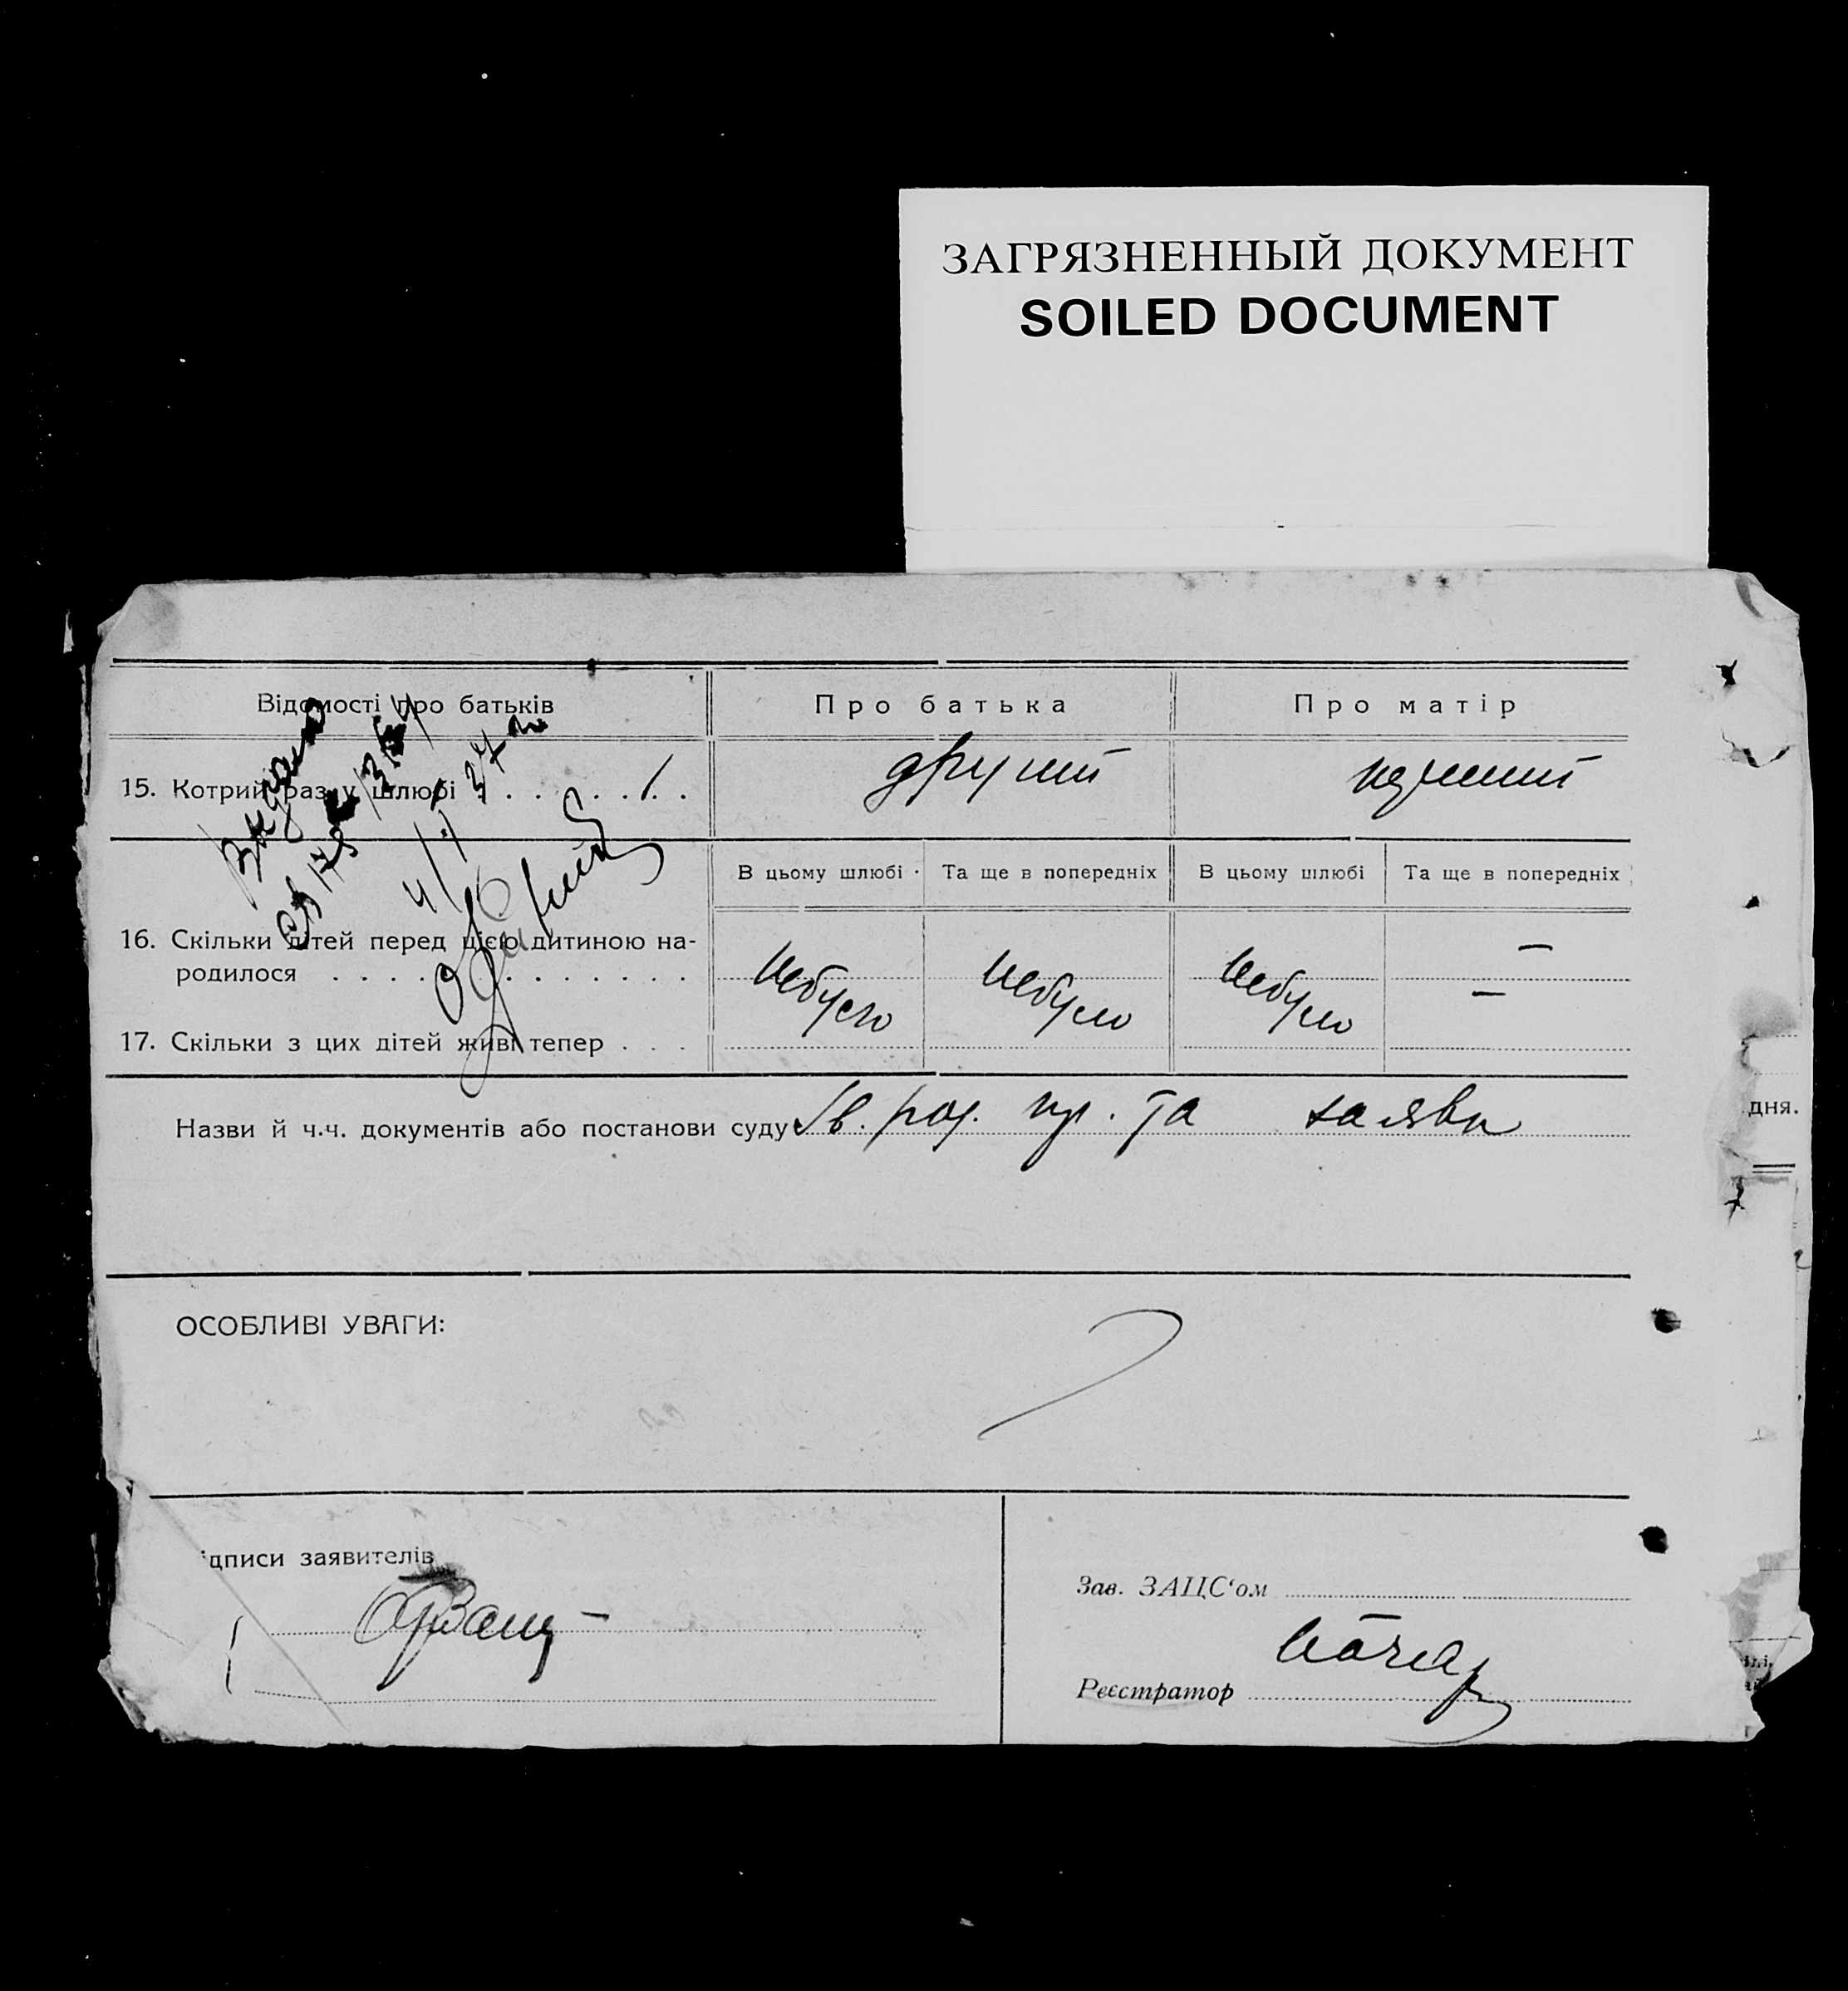 ЗАГРЯЗНЕННЫЙ ДОКУМЕНТ
SOILED DOCUMENT
Відомості про батьків
Про батька
Про матір
15. Котрий раз у шлюбі
другий
перший
В цьому шлюбі
Та ще в попередніх
В цьому шлюбі
Та ще в попередніх
16. Скільки дітей перед цією дитиною на-
родилося
небуло
небуло
небуло
—
—
17. Скільки з цих дітей живі тепер
Видано
37
Назви й ч.ч. документів або постанови суду Св. род. та заява
дня.
ОСОБЛИВІ УВАГИ:
ідписи заявителів
Зав. ЗАЦС‘ом
Реєстратор